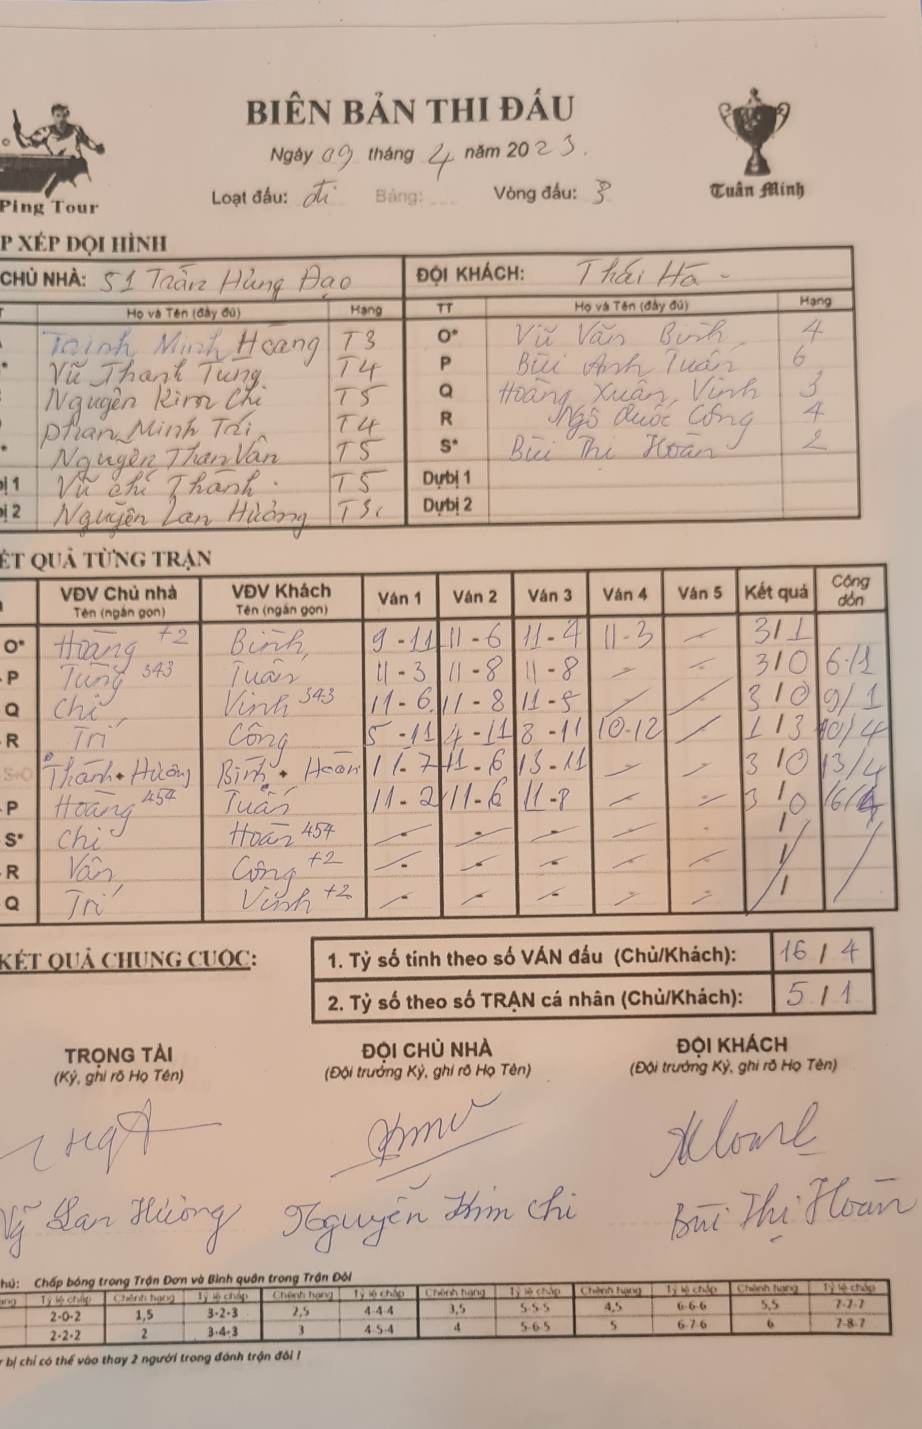 BIÊN BẢN THI ĐẤU
Ngày 09 tháng 4 năm 2023.
Loạt đấu: đi Bảng: Vòng đấu: 3
Ping Tour
Tuấn Minh
P XẾP ĐỘI HÌNH
CHỦ NHÀ: 51 Trần Hưng Đạo ĐỘI KHÁCH: Thái Hà
Họ và Tên (đầy đủ) Hạng TT Họ và Tên (đầy đủ) Hạng
Trịnh Minh Hoàng T3 O* Vũ Văn Bình 4
Vũ Thanh Tùng T4 P Bùi Anh Tuấn 6
Nguyễn Kim Chi T5 Q Hoàng Xuân Vinh 3
Phan Minh Trí T4 R Ngô Quốc Công 4
Nguyễn Than Vân T5 S* Bùi Thị Hoàn 2
ị 1 Vũ Chí Thành T5 Dự bị 1
ị 2 Nguyễn Lan Hương T3 Dự bị 2
ẾT QUẢ TỪNG TRẬN
VĐV Chủ nhà VĐV Khách Ván 1 Ván 2 Ván 3 Ván 4 Ván 5 Kết quả Cộng dồn
Tên (ngắn gọn) Tên (ngắn gọn)
O* Hoàng +2 Bình 9-11 11-6 11-4 11-3 - 3/1
P Tùng 343 Tuấn 11-3 11-8 11-8 - - 3/0 6/1
Q Chi Vinh 343 11-6 11-8 11-5 - - 3/0 9/1
R Trí Công 5-11 4-11 8-11 10-12 - 1/3 10/4
S+O Thành + Hương Bình + Hoàn 11-7 11-6 13-11 - - 3/0 13/4
P Hoàng 454 Tuấn 11-2 11-6 11-8 - - 3/0 16/4
S* Chi Hoàn 454 - - - - - /
R Vân Công +2 - - - - - /
Q Trí Vinh +2 - - - - - /
KẾT QUẢ CHUNG CUỘC:
1. Tỷ số tính theo số VÁN đấu (Chủ/Khách): 16 / 4
2. Tỷ số theo số TRẬN cá nhân (Chủ/Khách): 5 / 1
TRỌNG TÀI ĐỘI CHỦ NHÀ ĐỘI KHÁCH
(Ký, ghi rõ Họ Tên) (Đội trưởng Ký, ghi rõ Họ Tên) (Đội trưởng Ký, ghi rõ Họ Tên)
Lan Hương Nguyễn Kim Chi Bùi Thị Hoàn
hú: Chấp bóng trong Trận Đơn và Bình quân trong Trận Đôi
ạng Tỷ lệ chấp Chênh hạng Tỷ lệ chấp Chênh hạng Tỷ lệ chấp Chênh hạng Tỷ lệ chấp Chênh hạng Tỷ lệ chấp Chênh hạng Tỷ lệ chấp
2-0-2 1,5 3-2-3 2,5 4-4-4 3,5 5-5-5 4,5 6-6-6 5,5 7-7-7
2-2-2 2 3-4-3 3 4-5-4 4 5-6-5 5 6-7-6 6 7-8-7
bị chỉ có thể vào thay 2 người trong đánh trận đôi !